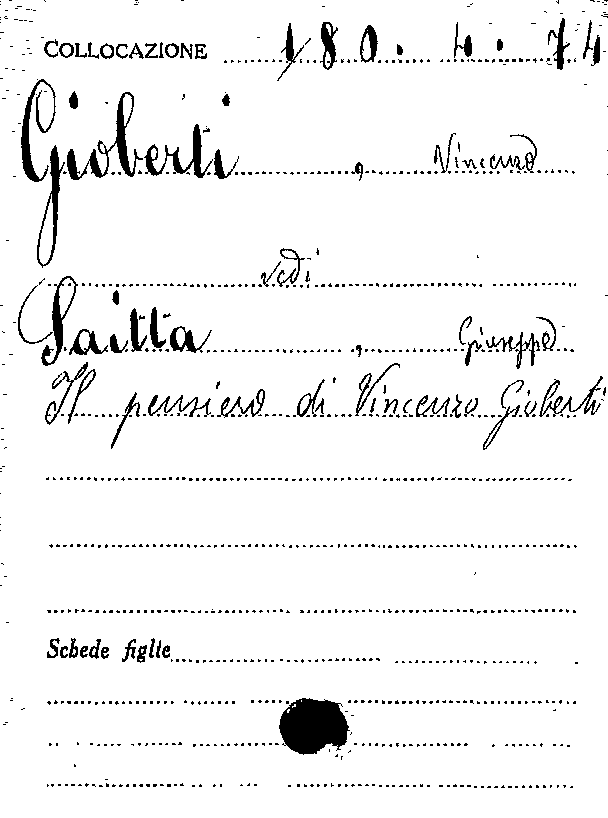 COLLOCAZIONE 180. 4. 74
Gioberti, Vincenzo
vedi
Saitta, Giuseppe
Il pensiero di Vincenzo Gioberti
Schede figlie